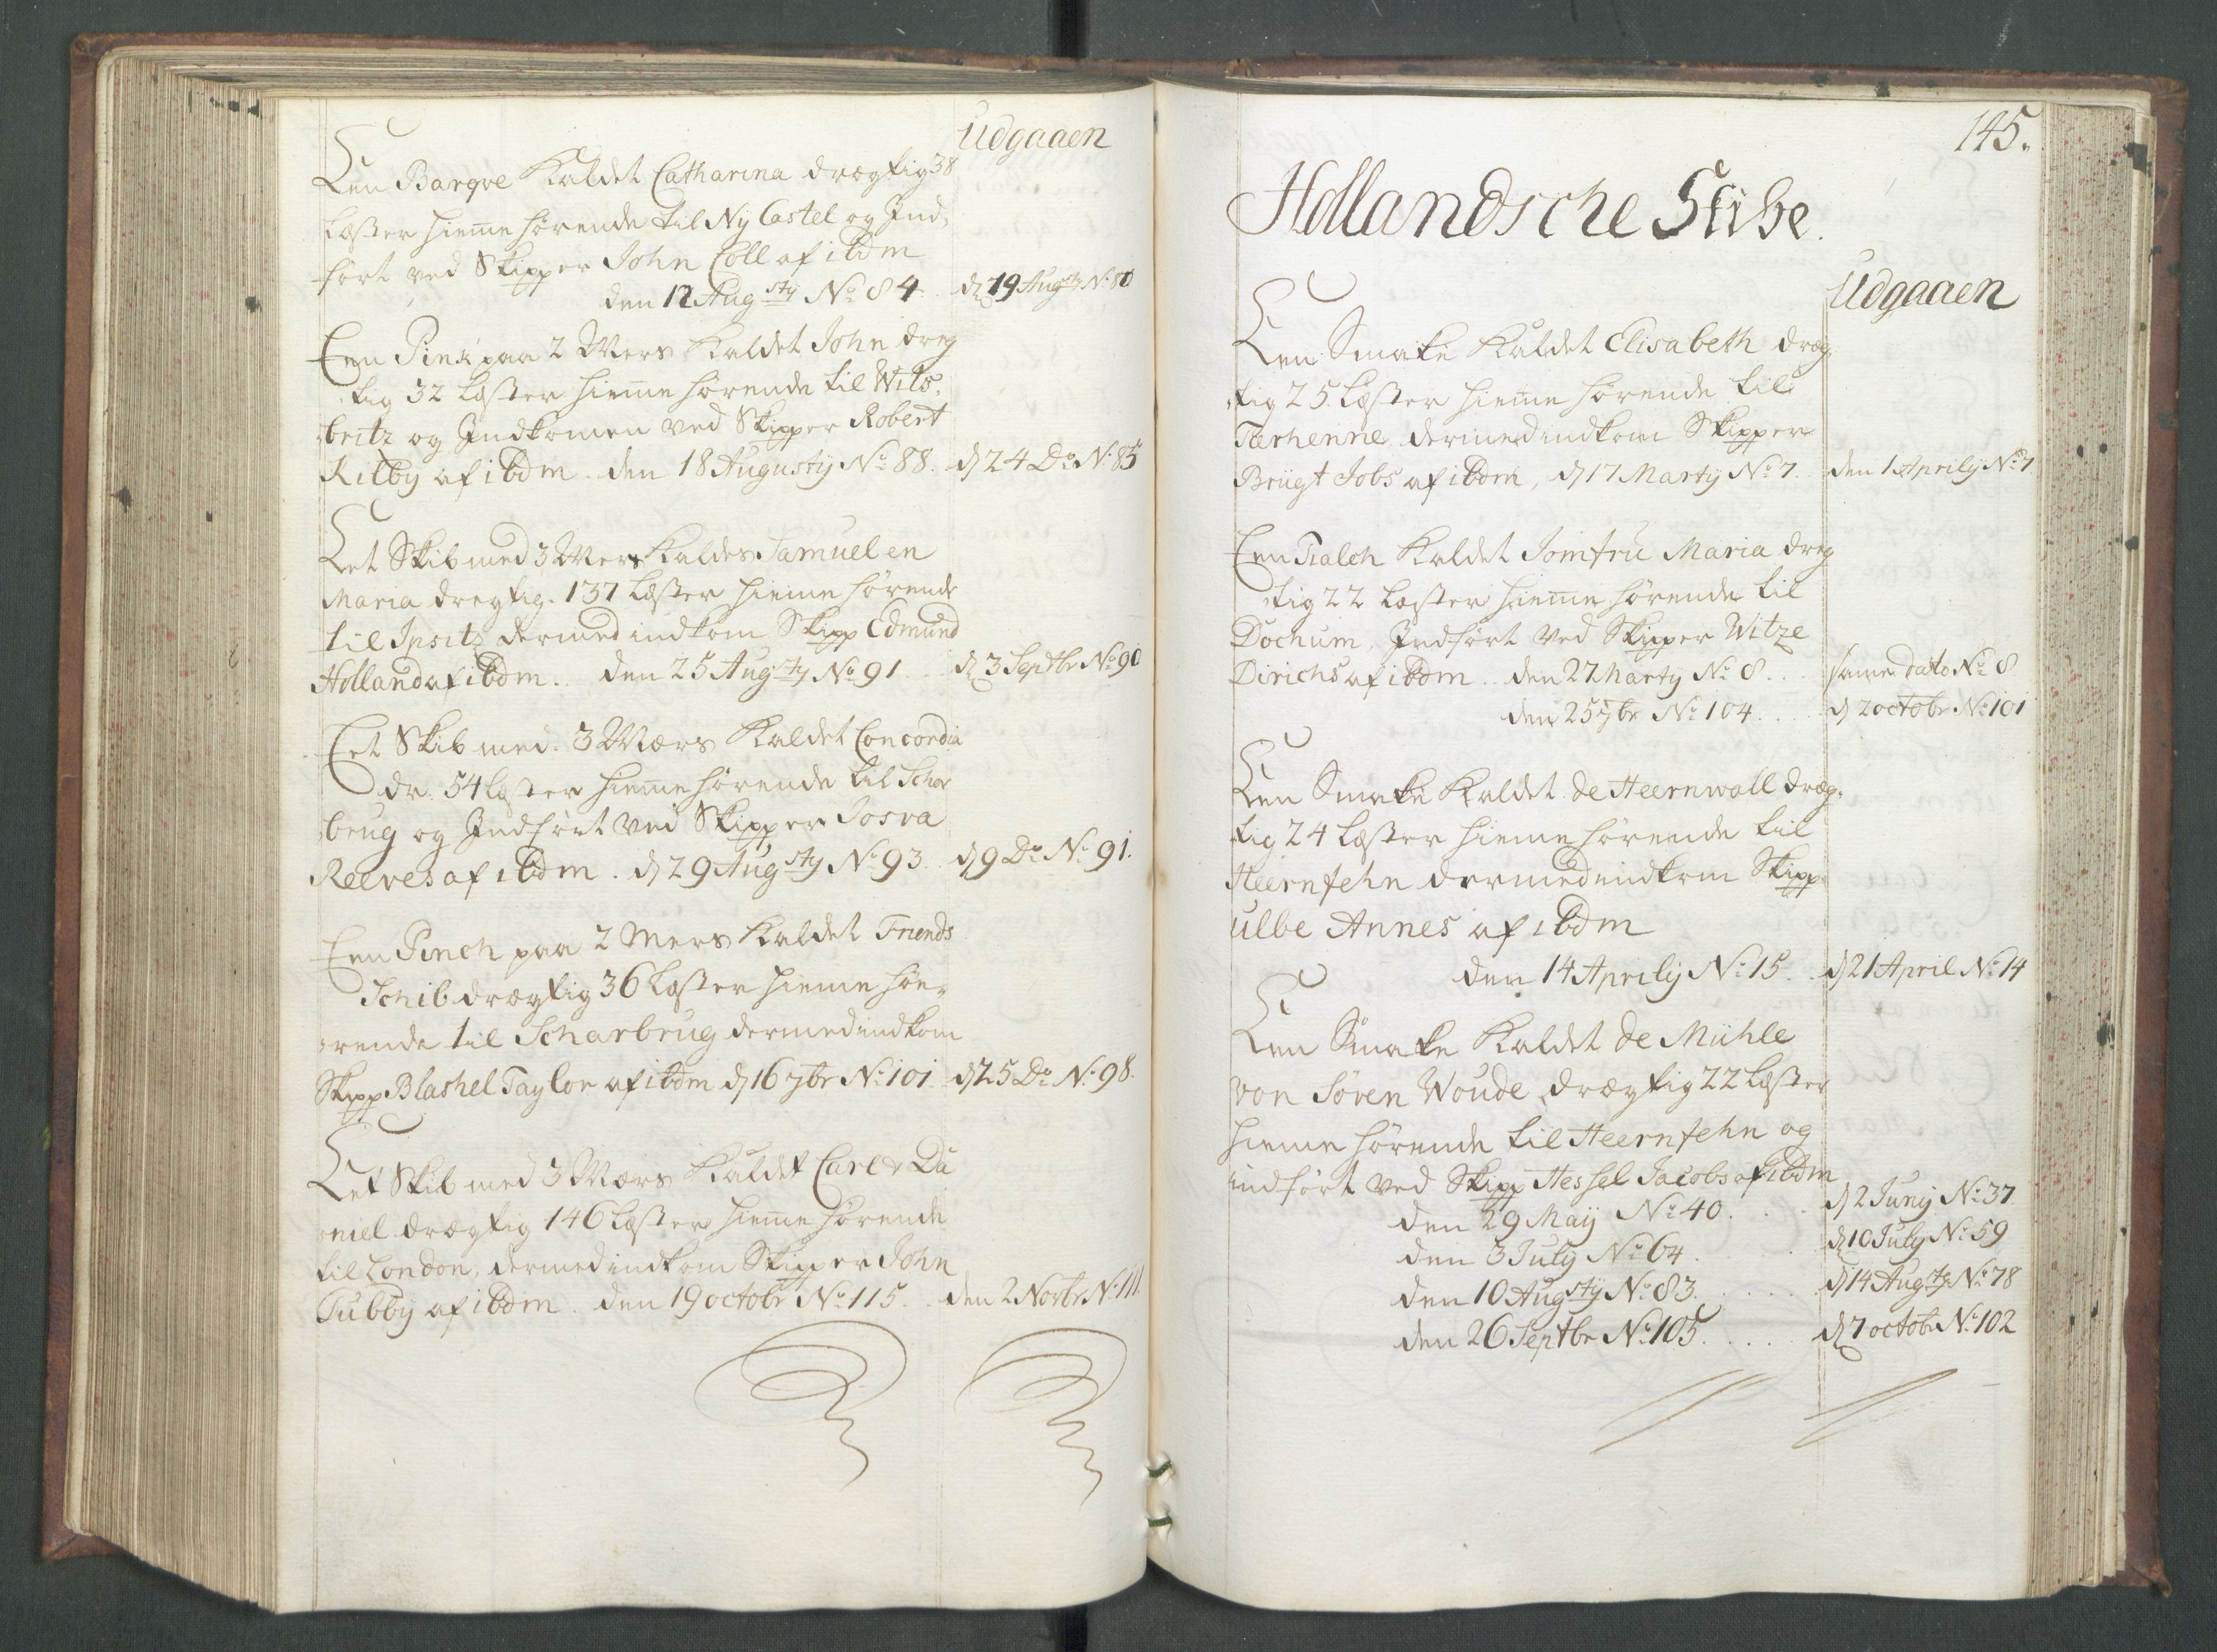 Udgaaen
Een Barqve Kaldet Catharina drægtig 38
Læster hiemme hørende til Ny Castel og Ind-
ført ved Skipper John Coll af ibdm
den 12 Augsty No 84. d 19 Augsty No 80
Een Pink paa 2 Mers Kaldet John dreg
tig 32 Læster hiemme hørende til Wits-
britz og Indkomen ved Skipper Robert
Kilby af ibdm. den 18 Augusty No 88. d 24 Do No 85
Eet Skib med 3 Mers Kaldes Samuel en
Maria drægtig. 137 Læster hieme hørende
til Ipsits dermed indkom Skipp Edmund
Holland af ibdm. den 25 Augsty No 91. d 3 Septbr No 90
Eet Skib med 3 Mærs Kaldet Concordia
dr. 54 Læster hiemme hørende til Schar
brug og Indført ved Skipper Josva
Reeves af ibdm. d 29 Augsty No 93. d 9 Do No 91.
Een Pinch paa 2 Mers Kaldet Friends
Schib drægtig 36 Læster hieme hør-
rende til Scharbrug dermed indkom
Skipp Blashel Taylor af ibdm d 16 7br No 101. d 25 Do No 98.
Eet Skib med 3 Mærs Kaldet Carl & Da
niel drægtig 146 Læster hieme hørende
til London, dermed indkom Skipper John
Tubby af ibdm. den 19 octobr No 115. den 2 Novbr No 111.
145.
Hollandsche Skibe.
Udgaaen
Een Smake Kaldet Elisabeth dræg
tig 25 Læster hiemme hørende til
Terhenne dermed indkom Skipper
Brügt Jobs af ibdm, d 17 Marty No 7. den 1 Aprily No 7.
Een Tialch Kaldet Jomfru Maria dreg
tig 22 Læster hiemme hørende til
Dochum, Indført ved Skipper Witze
Dirichs af ibdm. den 27 Marty No 8... same dato No 8
den 25 7br No 104.... d 2 octobr No 101
Een Smake Kaldet de Heernwall dræg-
tig 24 Læster hieme hørende til
Heernfehn dermed indkom Skipp
Ulbe Annes af ibdm
den 14 Aprily No 15. d 21 April No 14
Een Smake Kaldet de Mühle
von Søven Woude drægtig 22 Læster
hieme hørende til Heernfehn og
indført ved Skipp Hessel Jacobs af ibdm
den 29 Maij No 40.... d 2 Junij No 37.
den 3 July No 64.... d 10 July No 59
den 10 Augsty No 83..... d 14 Augsty No 78
den 26 Septbr No 105.... d 7 octobr No 102